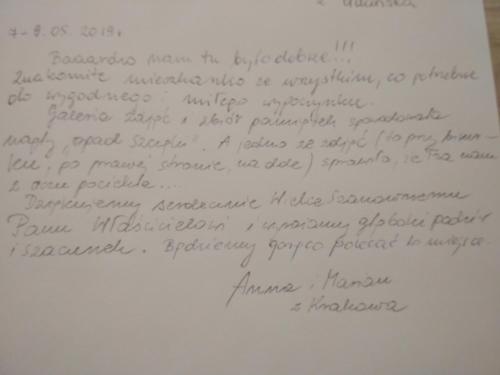 z Gdańska
7-9.05.2019r.
Baaardzo nam tu było dobrze!!!
Znakomite mieszkanko ze wszystkim, co potrzebne
do wygodnego i miłego wypoczynku.
Galeria zdjęć i zbiór pamiątek spowodowała
nagły „opad szczęki". A jedno ze zdjęć (to przy
po prawej stronie, na dole) sprawiło, że łza nam
z oczu pociekła...
Dziękujemy serdecznie Wielce Szanownemu
Panu Właścicielowi i wyrażamy głęboki podziw
i szacunek. Będziemy gorąco polecać to miejsce.
Anna i Marian
z Krakowa